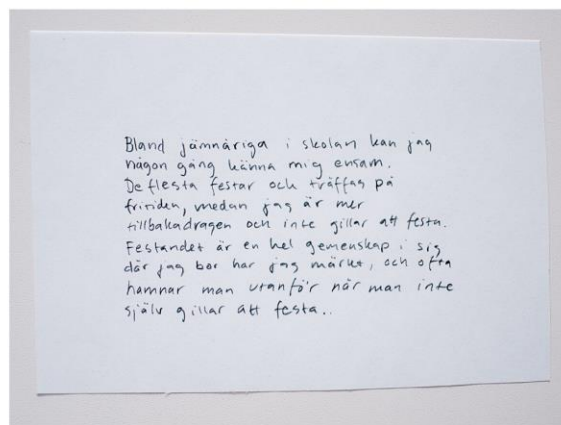 Bland jämnåriga i skolan kan jag
någon gång känna mig ensam.
De flesta festar och träffas på
fritiden, medan jag är mer
tillbakadragen och inte gillar att festa.
Festandet är en hel gemenskap i sig
där jag bor har jag märkt, och ofta
hamnar man utanför när man inte
själv gillar att festa..